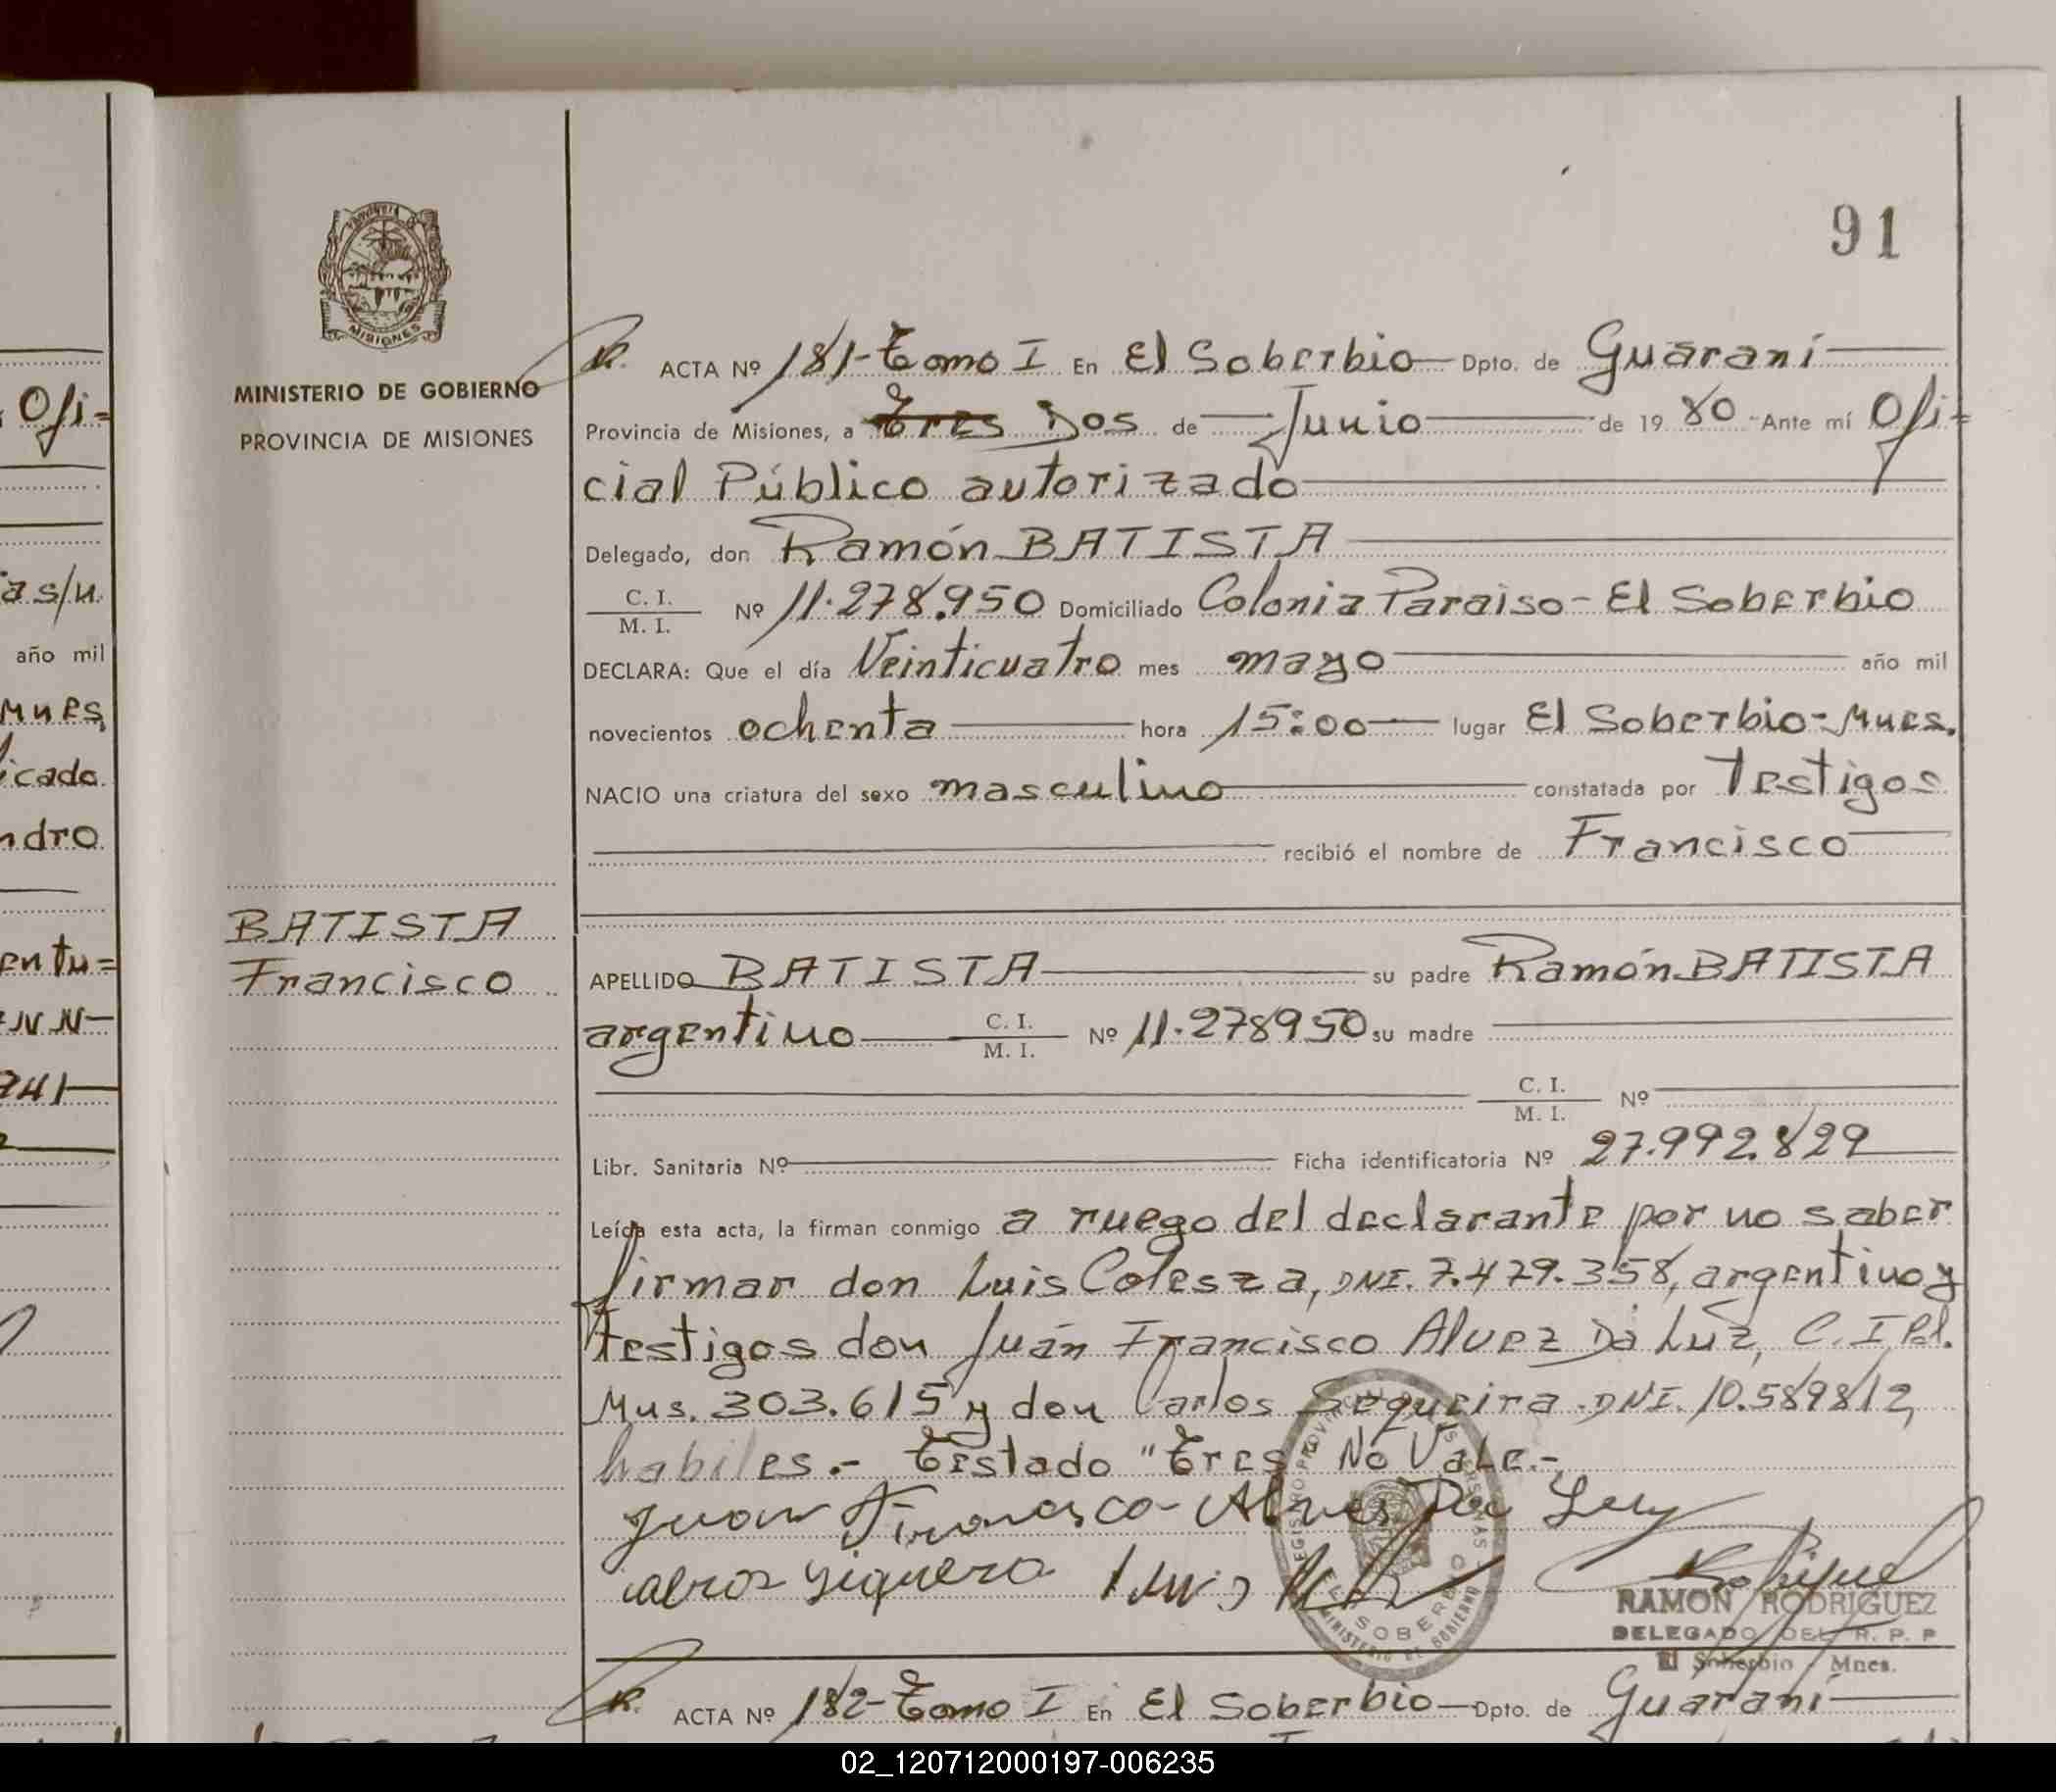 91
MISIONES
MINISTERIO DE GOBIERNO
PROVINCIA DE MISIONES
BATISTA
Francisco
ACTA Nº 181-Tomo I En El Soberbio Dpto. de Guaraní
Provincia de Misiones, a Tres Dos de Junio de 19 80 Ante mí Ofi=
cial Público autorizado
Delegado, don Ramón BATISTA
C. I.
M. I. Nº 11.278.950 Domiciliado Colonia Paraiso - El Soberbio
DECLARA: Que el día Veinticuatro mes mayo año mil
novecientos ochenta hora 15:00 lugar El Soberbio-Mnes.
NACIO una criatura del sexo masculino constatada por Testigos
recibió el nombre de Francisco
APELLIDO BATISTA su padre Ramón BATISTA
argentino C. I.
M. I. Nº 11.278950 su madre
C. I.
M. I. Nº
Libr. Sanitaria Nº Ficha identificatoria Nº 27.992.829
Leída esta acta, la firman conmigo a ruego del declarante por no saber
firmar don Luis Colesza, DNI. 7.479.358, argentino y
testigos don Juán Francisco Alvez Da Luz, C. I. Pol.
Mns. 303.615 y don Carlos Sequeira DNI. 10.589812,
habiles.- Testado "Tres" No Vale.-
Juan Francisco Alves Da Luz
Luis
RAMON RODRIGUEZ
DELEGADO DEL R. P. P
El Soberbio - Mnes.
EL SOBERBIO
MINISTERIO DE GOBIERNO
ACTA Nº 182-Tomo I En El Soberbio Dpto. de Guaraní
Ofi=
a s/n
año mil
Mnes,
icado
ndro
entu=
741
02_120712000197-006235